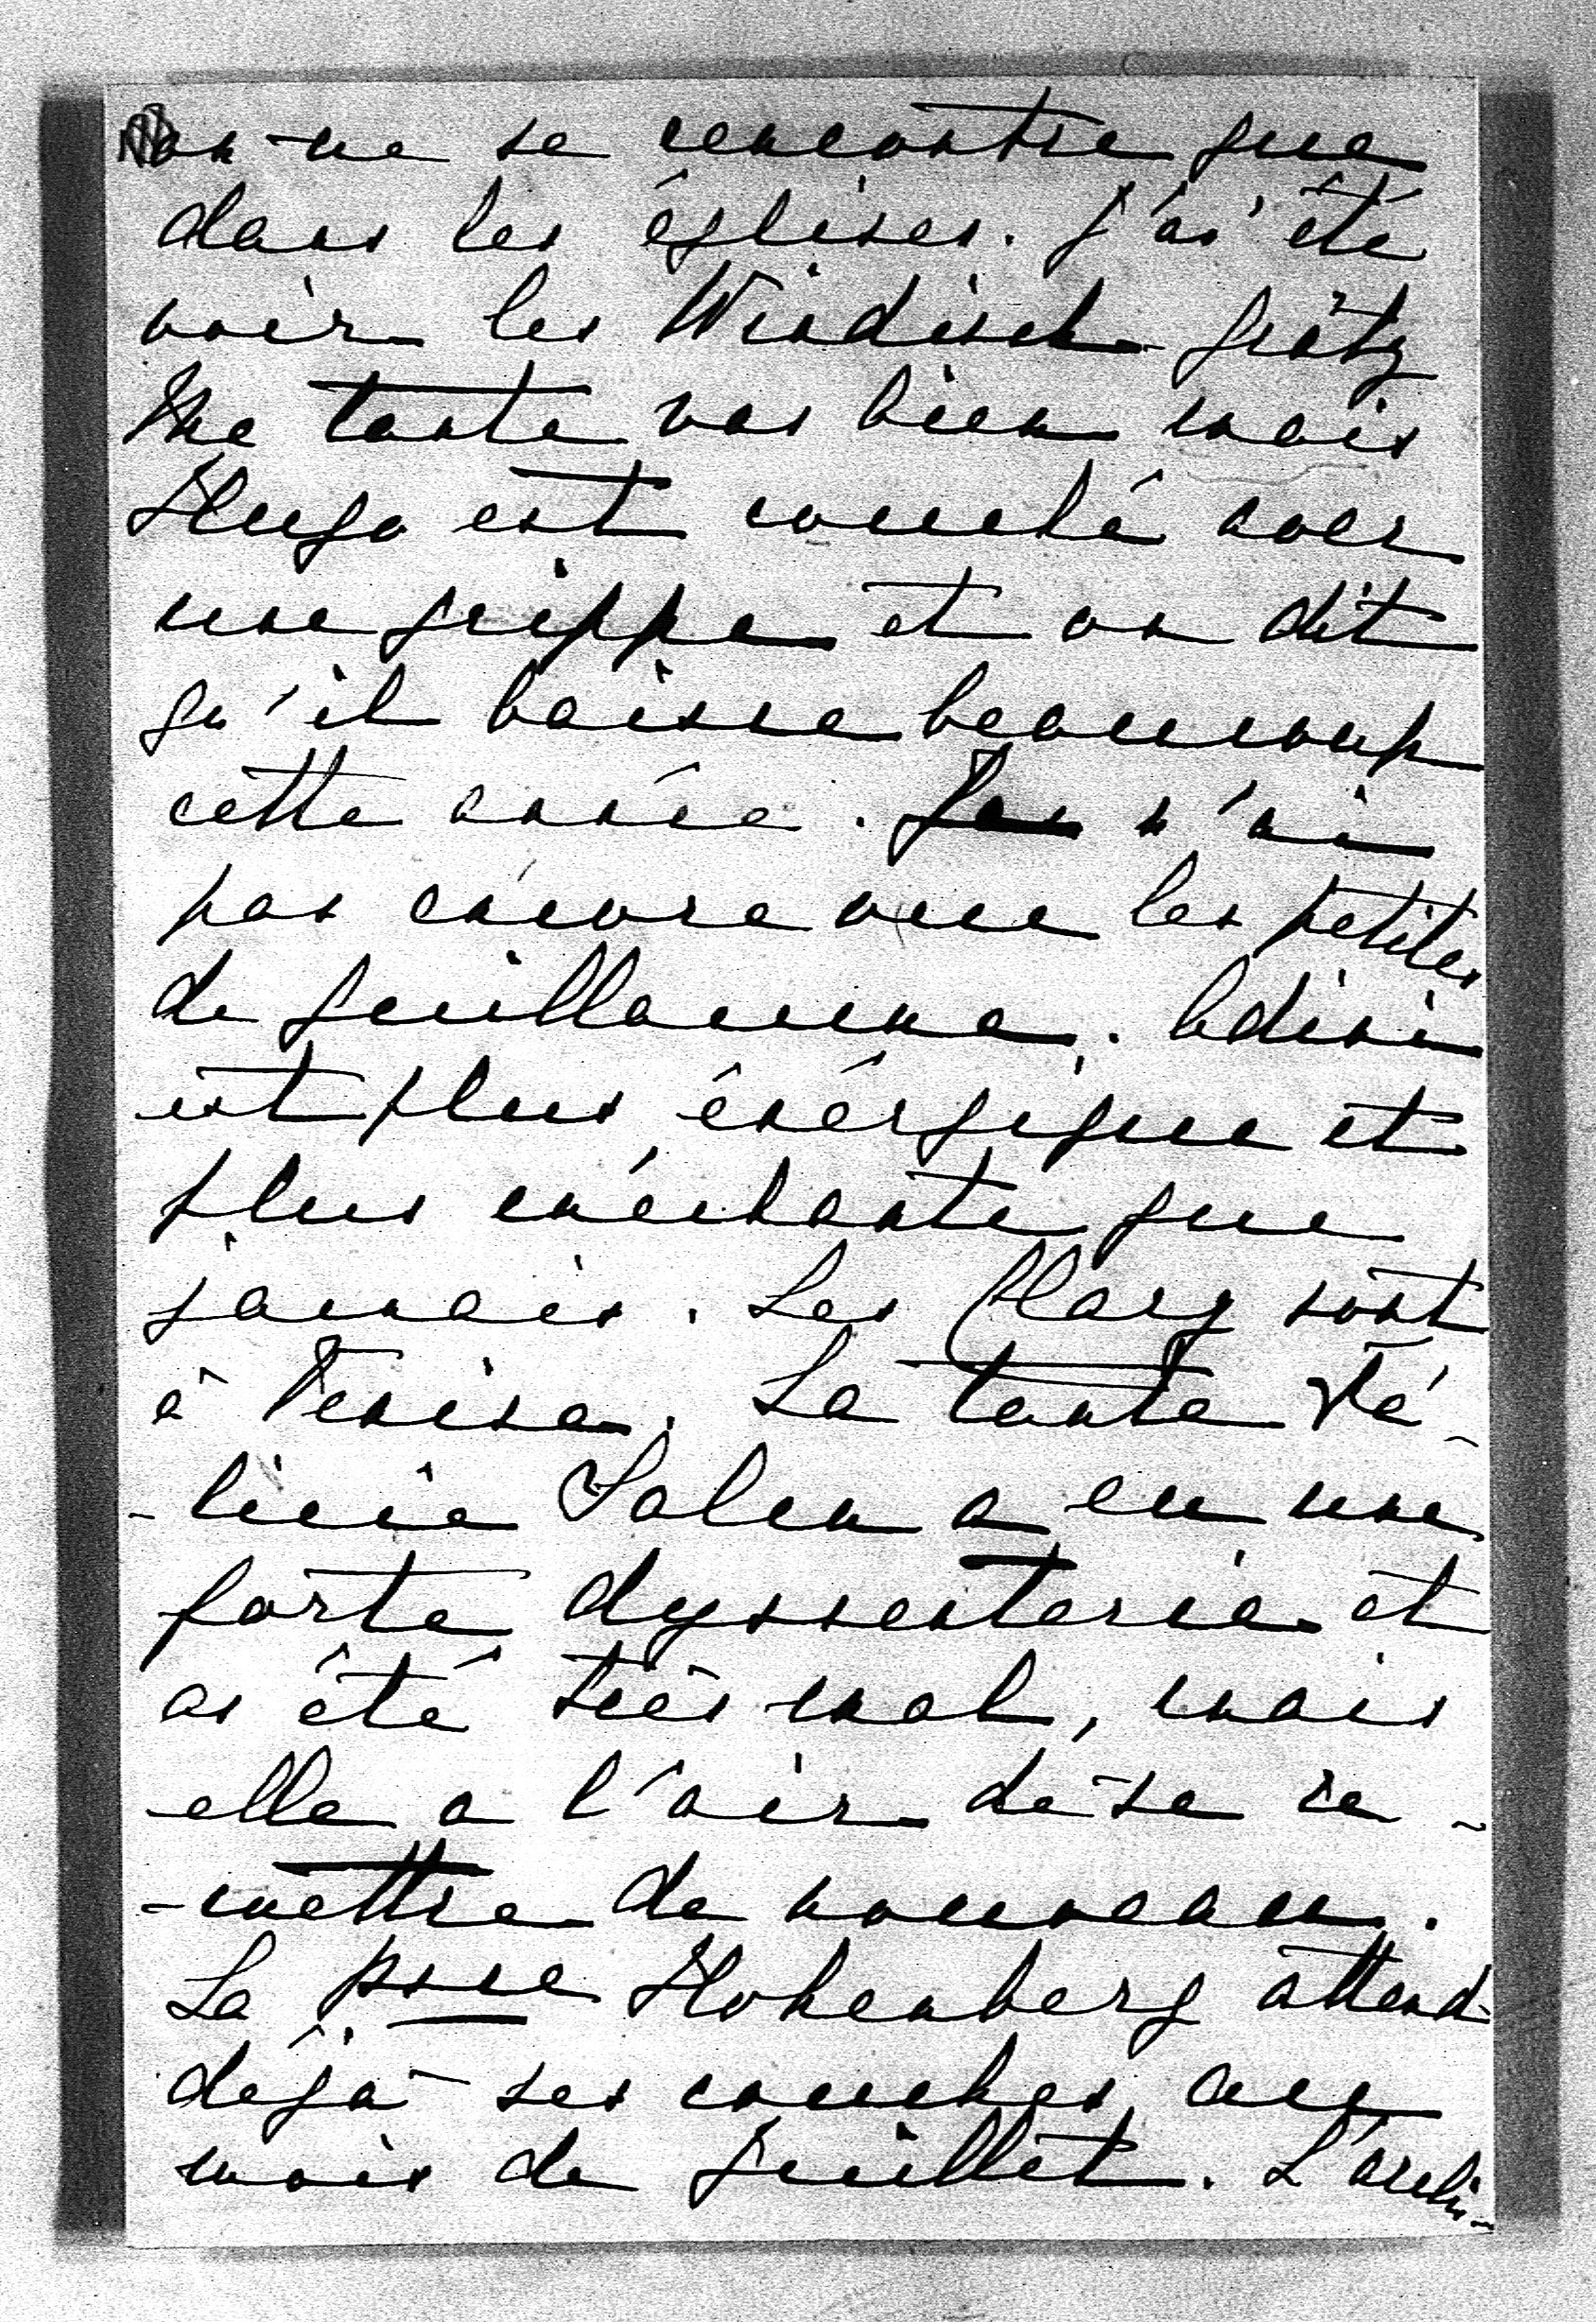 on ne se rencontre que
dans les églises. J'ai été
voir les Windisch-Grätz
Me tante vas bien mais
Hugo est couché avec
une grippe et on dit
qu'il baisse beaucoup
cette année. Je n'ai
pas encore vue les petites
de Guillaume.
est plus énérgique et
plus méchante que
jamais. Les Clary sont
à Venise. La tante Fé-
-licie Salm a eu une
forte dyssenterie et
as été très mal, mais
elle a l'air de se re-
-mettre de nouveau.
La psse Hohenberg attend
déjà ses couches au
mois de Juillet. L'archi-